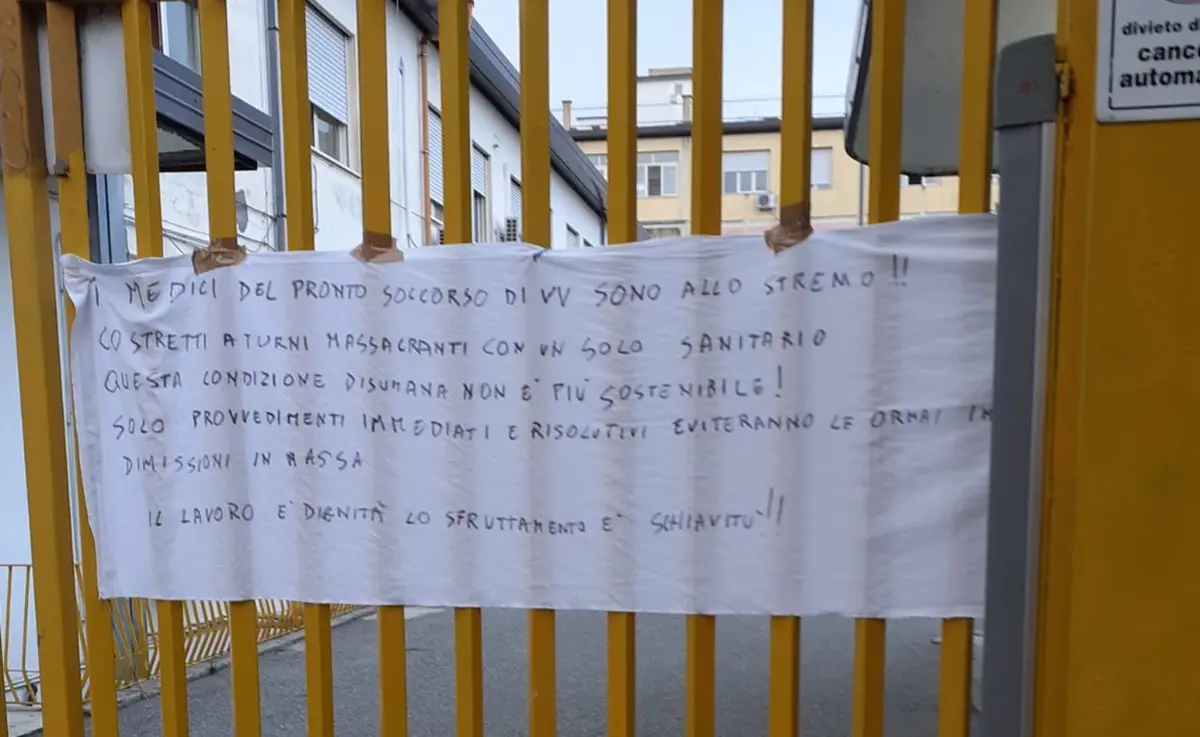 I MEDICI DEL PRONTO SOCCORSO DI VV SONO ALLO STREMO!!
COSTRETTI A TURNI MASSACRANTI CON UN SOLO SANITARIO
QUESTA CONDIZIONE DISUMANA NON E' PIÙ SOSTENIBILE!
SOLO PROVVEDIMENTI IMMEDIATI E RISOLUTIVI EVITERANNO LE ORMAI
DIMISSIONI IN MASSA
IL LAVORO E' DIGNITÀ LO SFRUTTAMENTO E' SCHIAVITU'!!
divieto d
canc
automa